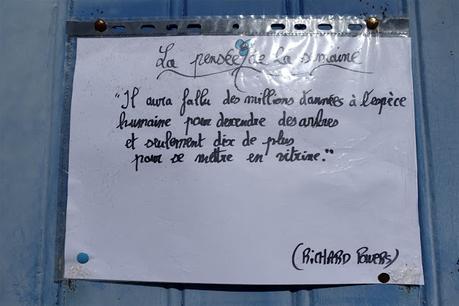 La pensée de la semaine
"Il aura fallu des millions d'années à l'espèce
humaine pour descendre des arbres
et seulement dix de plus
pour se mettre en vitrine."
(RICHARD POWERS)